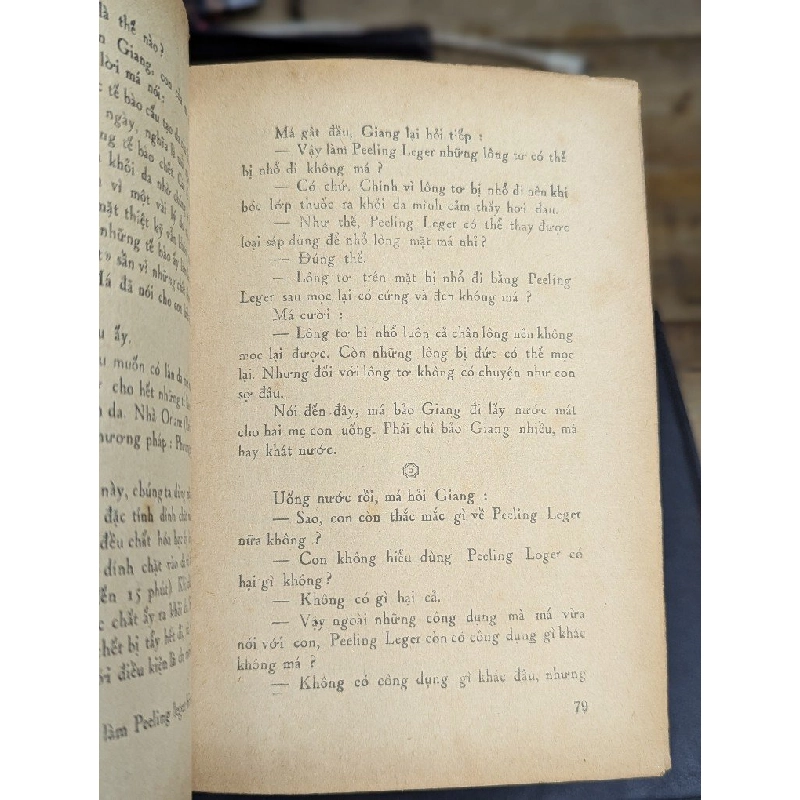 là thế nào?
Giang, con
lời má nói:
tế bào cấu tạo
ngày, nghĩa là
tế bào chết.
khỏi da như
vì một vài lý do
mặt thiệt kỹ vẫn
những tế bào ấy
sẵn vì những
Má đã nói cho con
ấy.
muốn có làn da
cho hết những
da. Nhà
phương pháp :
này, chúng ta
đặc tính dính
đều chất hóa học
dính chặt vào
15 phút)
chất ấy ra khỏi
hết bị tẩy hết
điều kiện là
làm Peeling leger
Má gật đầu, Giang lại hỏi tiếp :
— Vậy làm Peeling Leger những lông tơ có thể
bị nhổ đi không má ?
— Có chứ. Chính vì lông tơ bị nhổ đi nên khi
bóc lớp thuốc ra khỏi da mình cảm thấy hơi đau.
— Như thế, Peeling Leger có thể thay được
loại sáp dùng để nhổ lông mặt má nhỉ ?
— Đúng thế.
— Lông tơ trên mặt bị nhổ đi bằng Peeling
Leger sau mọc lại có cứng và đen không má ?
Má cười :
— Lông tơ bị nhổ luôn cả chân lông nên không
mọc lại được. Còn những lông bị đứt có thể mọc
lại. Nhưng đối với lông tơ không có chuyện như con
sợ đâu.
Nói đến đây, má bảo Giang đi lấy nước mát
cho hai mẹ con uống. Phải chỉ bảo Giang nhiều, má
hay khát nước.
Uống nước rồi, má hỏi Giang :
— Sao, con còn thắc mắc gì về Peeling Leger
nữa không ?
— Con không hiểu dùng Peeling Leger có
hại gì không ?
— Không có gì hại cả.
— Vậy ngoài những công dụng mà má vừa
nói với con, Peeling Leger còn có công dụng gì khác
không má ?
— Không có công dụng gì khác đâu, nhưng
79